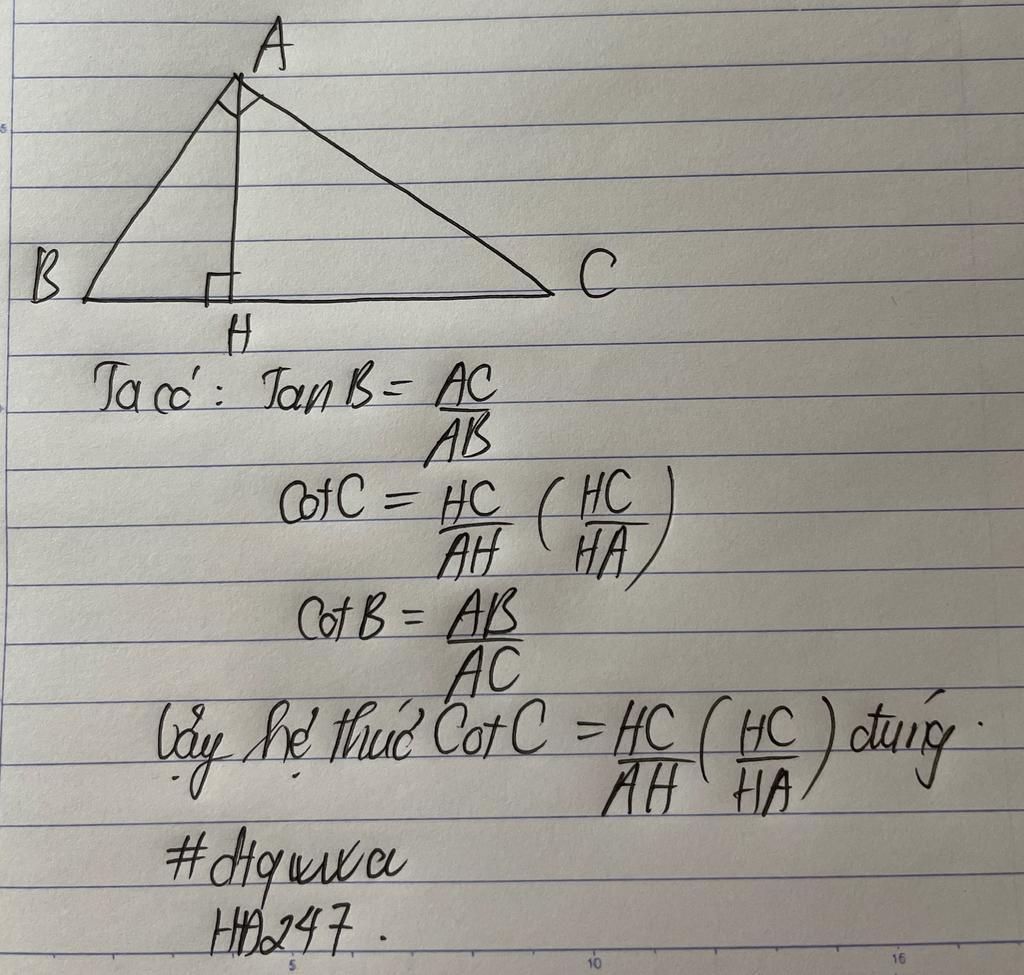 A
B
C
H
Ta có: Tan B = AC/AB
Cot C = HC/AH (HC/HA)
Cot B = AB/AC
Vậy hệ thức Cot C = HC/AH (HC/HA) đúng.
HA247.
5
10